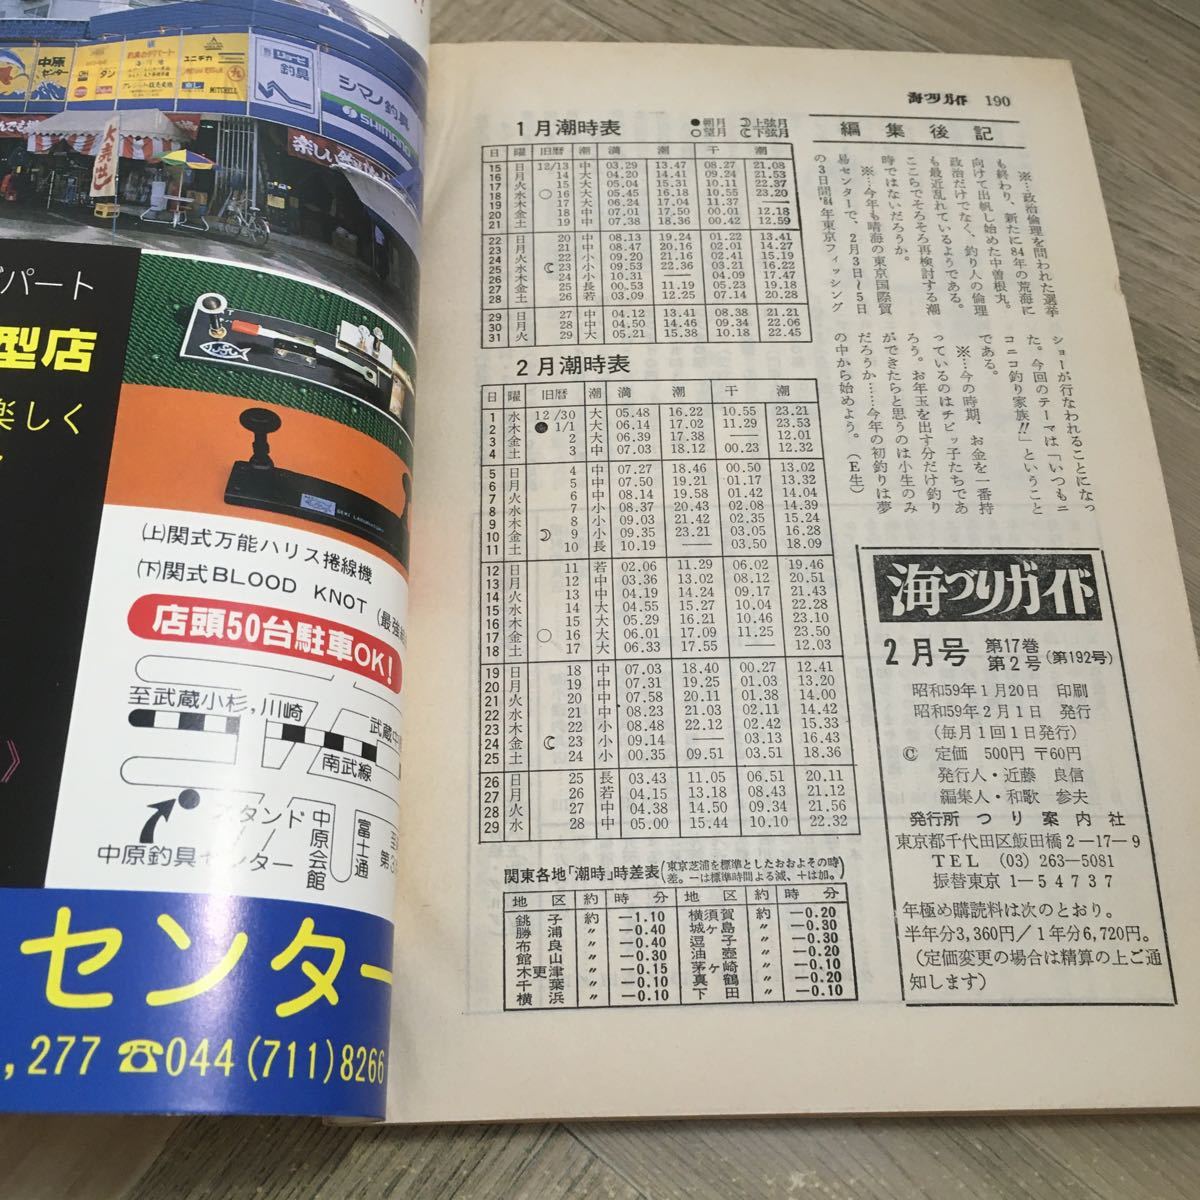 中原
センター
釣具のデパート
ユニチカ
タン
MITCHELL
釣具
シマノ釣具
SHIMANO
大売出し
楽しい釣り
パート
型店
楽しく
SEKI LABORATORY
(上)関式万能ハリス捲線機
(下)関式BLOOD KNOT (最強
店頭50台駐車OK!
至武蔵小杉,川崎
武蔵中
南武線
スタンド
中原会館
富士通
中原釣具センター
センター
,277 ☎044(711)8266
海づりガイド 190
1月潮時表
●朔月 ☽上弦月
○望月 ☾下弦月
日 曜 旧暦 潮 満潮 干潮
15 日 12/13 中 03.29 13.47 08.27 21.08
16 月 14 大 04.20 14.41 09.24 21.53
17 火 15 大 05.04 15.31 10.11 22.37
18 水 ○ 16 大 05.45 16.18 10.55 23.20
19 木 17 大 06.24 17.04 11.37 ―
20 金 18 中 07.01 17.50 00.01 12.18
21 土 19 中 07.38 18.36 00.42 12.59
22 日 20 中 08.13 19.24 01.22 13.41
23 月 21 中 08.47 20.16 02.01 14.27
24 火 22 小 09.20 21.16 02.41 15.19
25 水 ☾ 23 小 09.53 22.36 03.21 16.22
26 木 24 小 10.31 ― 04.09 17.47
27 金 25 長 00.53 11.19 05.23 19.18
28 土 26 若 03.09 12.25 07.14 20.28
29 日 27 中 04.12 13.41 08.38 21.21
30 月 28 中 04.50 14.46 09.34 22.06
31 火 29 大 05.21 15.38 10.18 22.45
2月潮時表
日 曜 旧暦 潮 満潮 干潮
1 水 12/30 大 05.48 16.22 10.55 23.21
2 木 ● 1/1 大 06.14 17.02 11.29 23.53
3 金 2 大 06.39 17.38 ― 12.01
4 土 3 中 07.03 18.12 00.23 12.32
5 日 4 中 07.27 18.46 00.50 13.02
6 月 5 中 07.50 19.21 01.17 13.32
7 火 6 中 08.14 19.58 01.42 14.04
8 水 7 小 08.37 20.43 02.08 14.39
9 木 8 小 09.03 21.42 02.35 15.24
10 金 ☽ 9 小 09.35 23.21 03.05 16.38
11 土 10 長 10.19 ― 03.50 18.09
12 日 11 若 02.06 11.29 06.02 19.46
13 月 12 中 03.36 13.02 08.12 20.51
14 火 13 中 04.19 14.24 09.17 21.43
15 水 14 大 04.55 15.27 10.04 22.28
16 木 15 大 05.29 16.21 10.46 23.10
17 金 ○ 16 大 06.01 17.09 11.25 23.50
18 土 17 大 06.33 17.55 ― 12.03
19 日 18 中 07.03 18.40 00.27 12.41
20 月 19 中 07.31 19.25 01.03 13.20
21 火 20 中 07.58 20.11 01.38 14.00
22 水 21 中 08.23 21.03 02.11 14.42
23 木 22 小 08.48 22.12 02.42 15.33
24 金 ☾ 23 小 09.14 ― 03.13 16.43
25 土 24 小 00.35 09.51 03.51 18.36
26 日 25 長 03.43 11.05 06.51 20.11
27 月 26 若 04.15 13.18 08.43 21.12
28 火 27 中 04.38 14.50 09.34 21.56
29 水 28 中 05.00 15.44 10.10 22.32
関東各地「潮時」時差表(東京芝浦を標準としたおおよその時差。−は標準時間よる減、+は加。)
地区 約 時分 地区 約 時分
銚子 約 −1.10 横須賀 約 −0.20
勝浦 〃 −0.40 城ヶ島 〃 −0.30
布良 〃 −0.40 逗子 〃 −0.30
館山 〃 −0.30 油壺 〃 −0.20
木更津 〃 −0.15 茅ヶ崎 〃 −0.10
千葉 〃 −0.10 真鶴 〃 −0.20
横浜 〃 −0.10 下田 〃 −0.10
編集後記
※…政治倫理を問われた選挙
も終わり、新たに84年の荒海に
向けて出帆し始めた中曽根丸。
政治だけでなく、釣り人の倫理
も最近乱れているようである。
ここらでそろそろ再検討する潮
時ではないだろうか。
※…今年も晴海の東京国際貿
易センターで、2月3日〜5日
の3日間'84年東京フィッシング
ショーが行なわれることになっ
た。今回のテーマは「いつもニ
コニコ釣り家族!!」ということ
である。
※…今の時期、お金を一番持
っているのはチビッ子たちであ
ろう。お年玉を出す分だけ釣り
ができたらと思うのは小生のみ
だろうか……今年の初釣りは夢
の中から始めよう。(E生)
海づりガイド
2月号 第17巻 第2号(第192号)
昭和59年1月20日 印刷
昭和59年2月1日 発行
(毎月1回1日発行)
Ⓒ 定価 500円 〒60円
発行人・近藤 良信
編集人・和歌 参夫
発行所 つり案内社
東京都千代田区飯田橋2−17−9
TEL (03)263−5081
振替東京1−54737
年極め購読料は次のとおり。
半年分3,360円/1年分6,720円。
(定価変更の場合は精算の上ご通
知します)